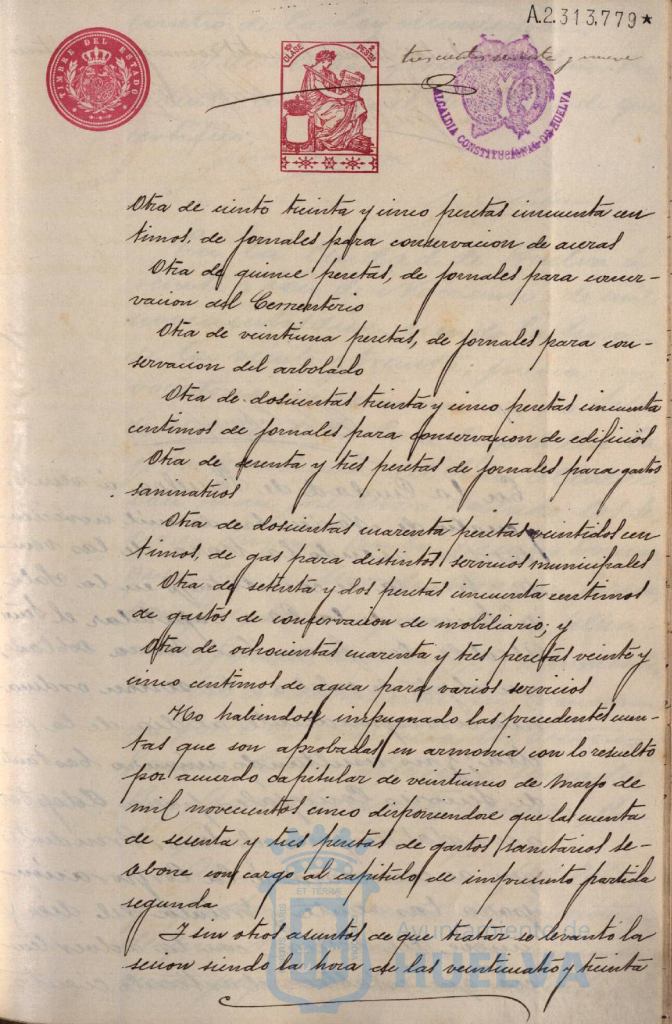 A.2.313.779★
TIMBRE DEL ESTADO
10ª CLASE
2 PESTAS
trescientos sesenta y nueve
ALCALDIA CONSTITUCIONAL DE HUELVA
Otra de ciento treinta y cinco pesetas cincuenta cen
timos, de jornales para conservacion de aceras
Otra de quince pesetas, de jornales para conser-
vacion del Cementerio
Otra de veintiuna pesetas, de jornales para con-
servacion del arbolado
Otra de doscientas treinta y cinco pesetas cincuenta
centimos de jornales para conservacion de edificios
Otra de sesenta y tres pesetas de jornales para gastos
sanitarios
Otra de doscientas cuarenta pesetas veintidos cen
timos, de gas para distintos servicios municipales
Otra de setenta y dos pesetas cincuenta centimos
de gastos de conservacion de mobiliario; y
Otra de ochocientas cuarenta y tres pesetas veinte y
cinco centimos de agua para varios servicios
No habiendose impugnado las precedentes cuen-
tas que son aprobadas en armonia con lo resuelto
por acuerdo capitular de veinticinco de Marzo de
mil novecientos cinco disponiendose que la cuenta
de sesenta y tres pesetas de gastos sanitarios se
abone con cargo al capitulo de imprevisto partida
segunda
Y sin otros asuntos de que tratar se levantó la
sesion siendo la hora de las veinticuatro y treinta
Ayuntamiento de
HUELVA